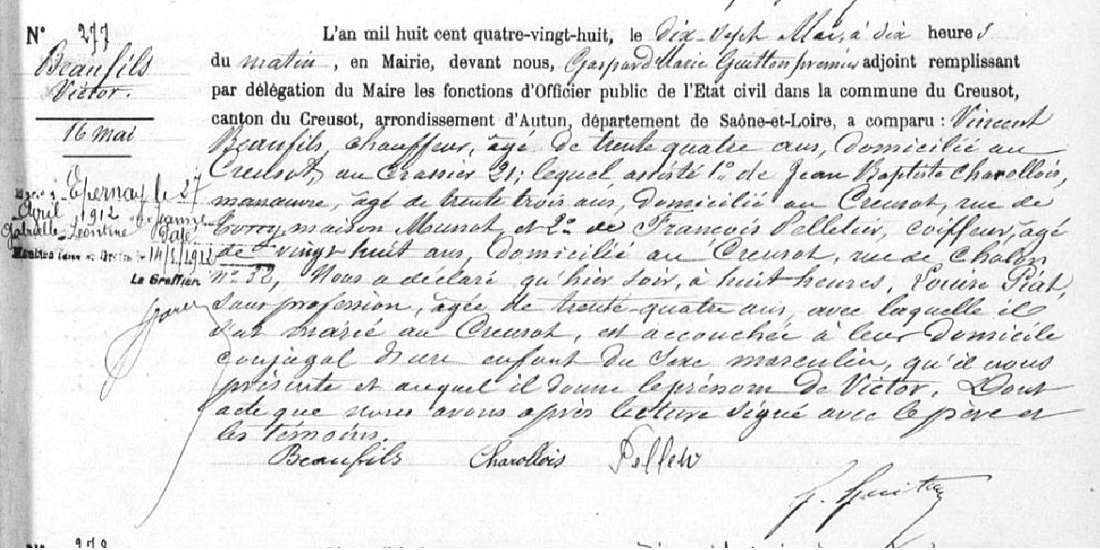 N° 277
Beaufils
Victor.
16 mai
Epernay le 27
Avril 1912
Gabrielle Léontine
14/5/1912
Le Greffier
L'an mil huit cent quatre-vingt-huit, le dix sept Mai, à dix heures
du matin, en Mairie, devant nous, Gaspard Marie Guitton premier adjoint remplissant
par délégation du Maire les fonctions d'Officier public de l'Etat civil dans la commune du Creusot,
canton du Creusot, arrondissement d'Autun, département de Saône-et-Loire, a comparu : Vincent
Beaufils, chauffeur, âgé de trente quatre ans, domicilié au
Creusot, au Crassier 21; lequel assisté 1° de Jean Baptiste Charollois,
manœuvre, âgé de trente trois ans, domicilié au Creusot, rue de
maison Munot, et 2° de François Pelletier, coiffeur, âgé
de vingt huit ans, domicilié au Creusot, rue de Chalon
n° 32, Nous a déclaré qu'hier soir, à huit heures, Louise Piat,
sans profession, âgée de trente-quatre ans, avec laquelle il
s'est marié au Creusot, est accouchée à leur domicile
conjugal d'un enfant du sexe masculin, qu'il nous
présente et auquel il donne le prénom de Victor. Dont
acte que nous avons après lecture signé avec le père et
les témoins.
Beaufils Charollois Pelletier
G. Guitton
N° 278